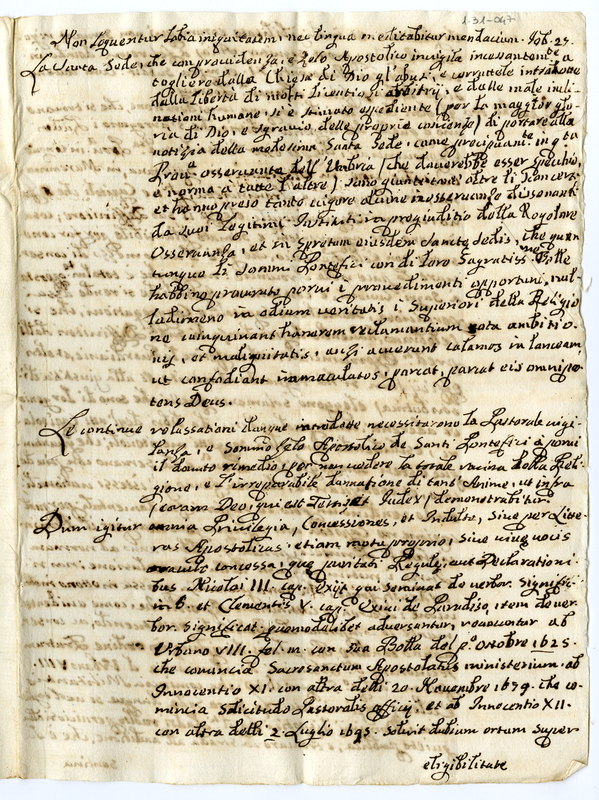 1.31-047
Non loquentur labia iniquitatem, nec lingua meditabitur mendacium. Job. 27.
La Santa Sede, che con providenza, e zelo Apostolico invigila incessantem.te a
togliere dalla Chiesa di Dio gl'abusi, e corruttele introdotte
dalla libertà di molti licentiosi arbitrij, e dalle male incli-
nationi humane, si è stimato espediente (per la maggior glo-
ria di Dio, e sgravio delle proprie conscienze) di portare alla
notizia della medesima Santa Sede, come precipuam.te in q.ta
Prov.a osservante dell'Umbria (che dovrebbe esser specchio,
e norma a tutte l'altre) sono giunti tant'oltre li
et hanno preso tanto vigore alcune inosservanze dissonanti
da suoi legitimi Instituti in pregiuditio della Regolare
Osservanza, et in spretum eiusdem Sanctæ Sedis, che quan
tunque li Sommi Pontefici con di loro Sagratiss.me Bolle
habbino procurato porvi i provedimenti opportuni, nul-
ladimeno in odium veritatis i Superiori della Religio
ne coinquinant honorem reclamantium nota ambitio-
nis, et malignitatis, ausi acuerunt calamos in lanceam,
ut confodiant immaculatos, parcat, parcat eis omnipo-
tens Deus.
Le continue vessationi dunque introdotte necessitarono la Pastorale vigi-
lanza, e sommo zelo Apostolico de Santi Pontefici à porvi
il dovuto rimedio, per non vedere la totale ruina della Reli-
gione, e l'irreparabile dannatione di tant'Anime, ut infra
(coram Deo, qui est Testis, et Iudex) demonstrabitur.
Dum igitur omnia Privilegia, Concessiones, et Indulta, sive per Lite-
ras Apostolicas, etiam motu proprio, sive vivæ vocis
oraculo concessa, quæ puritati Regulæ, aut Declarationi-
bus Nicolai III. cap. Exijt qui seminat de verbor. signific.
in 6. et Clementis V. cap. Exivi de Paradiso, item de ver-
bor. significat. quomodolibet adversantur, revocantur ab
Urbano VIII. fel. m. con sua Bolla del p.o Ottobre 1625.
che comincia Sacrosanctum Apostolatus ministerium, ab
Innocentio XI. con altra delli 20. Novembre 1679. che co-
mincia Solicitudo Pastoralis officij, et ab Innocentio XII.
con altra delli 2 Luglio 1695. solvit dubium ortum super
eligibilitate